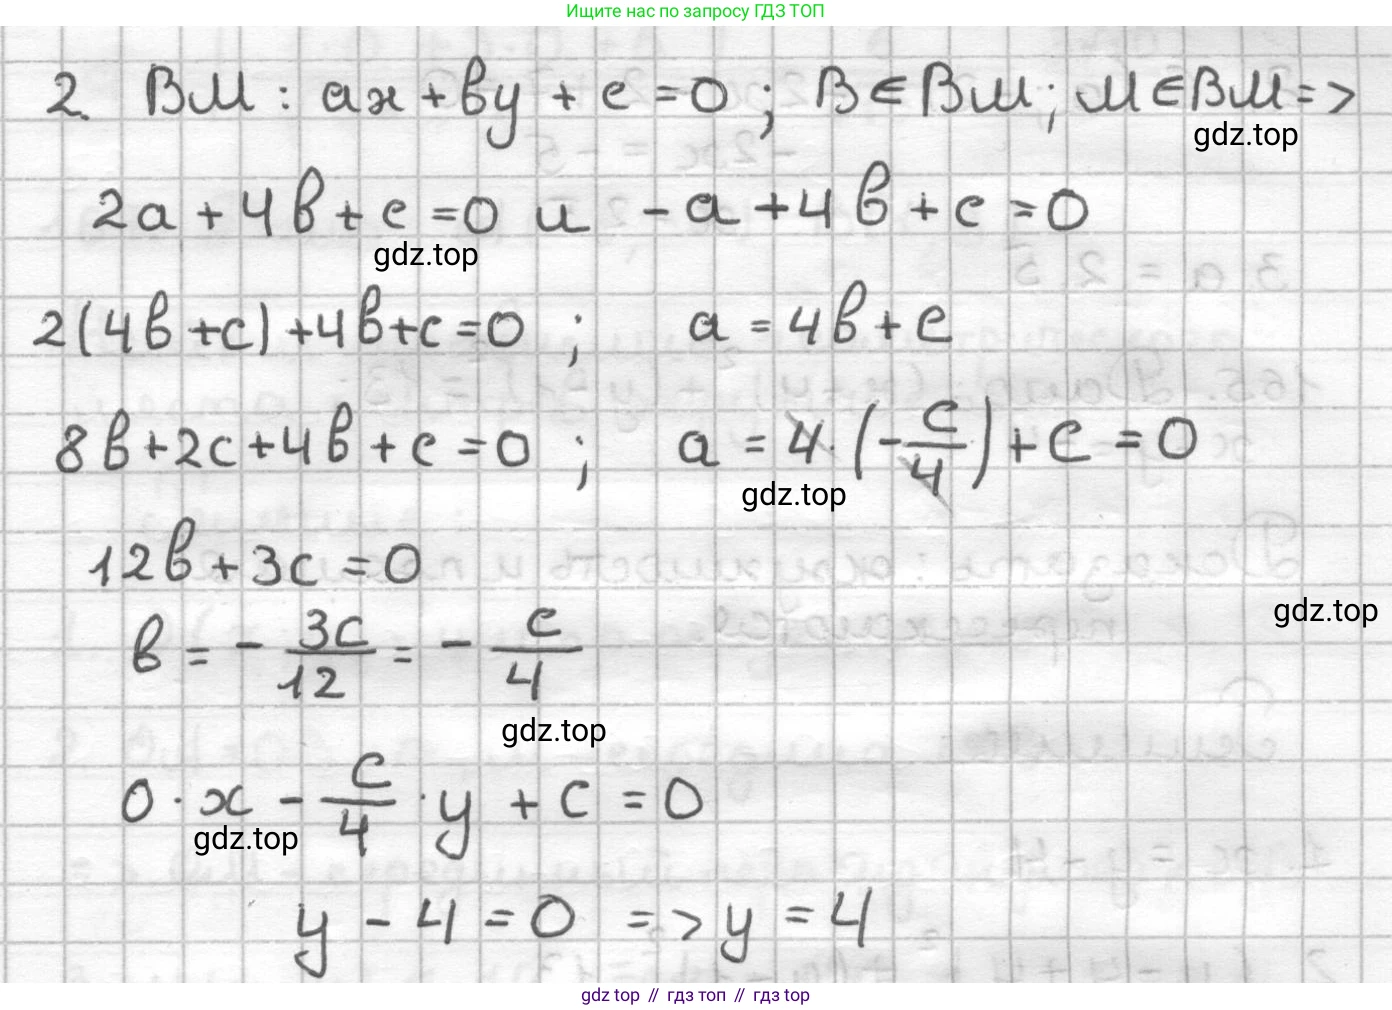 Ищите нас по запросу ГДЗ ТОП
2. BM : ax + by + c = 0 ; B ∈ BM ; M ∈ BM =>
gdz.top
2a + 4b + c = 0 и -a + 4b + c = 0
gdz.top
2(4b + c) + 4b + c = 0 ; a = 4b + c
8b + 2c + 4b + c = 0 ; a = 4 · (-c/4) + c = 0
gdz.top
12b + 3c = 0
gdz.top
b = - 3c/12 = - c/4
gdz.top
0 · x - c/4 · y + c = 0
gdz.top
y - 4 = 0 => y = 4
gdz top // гдз топ // гдз top